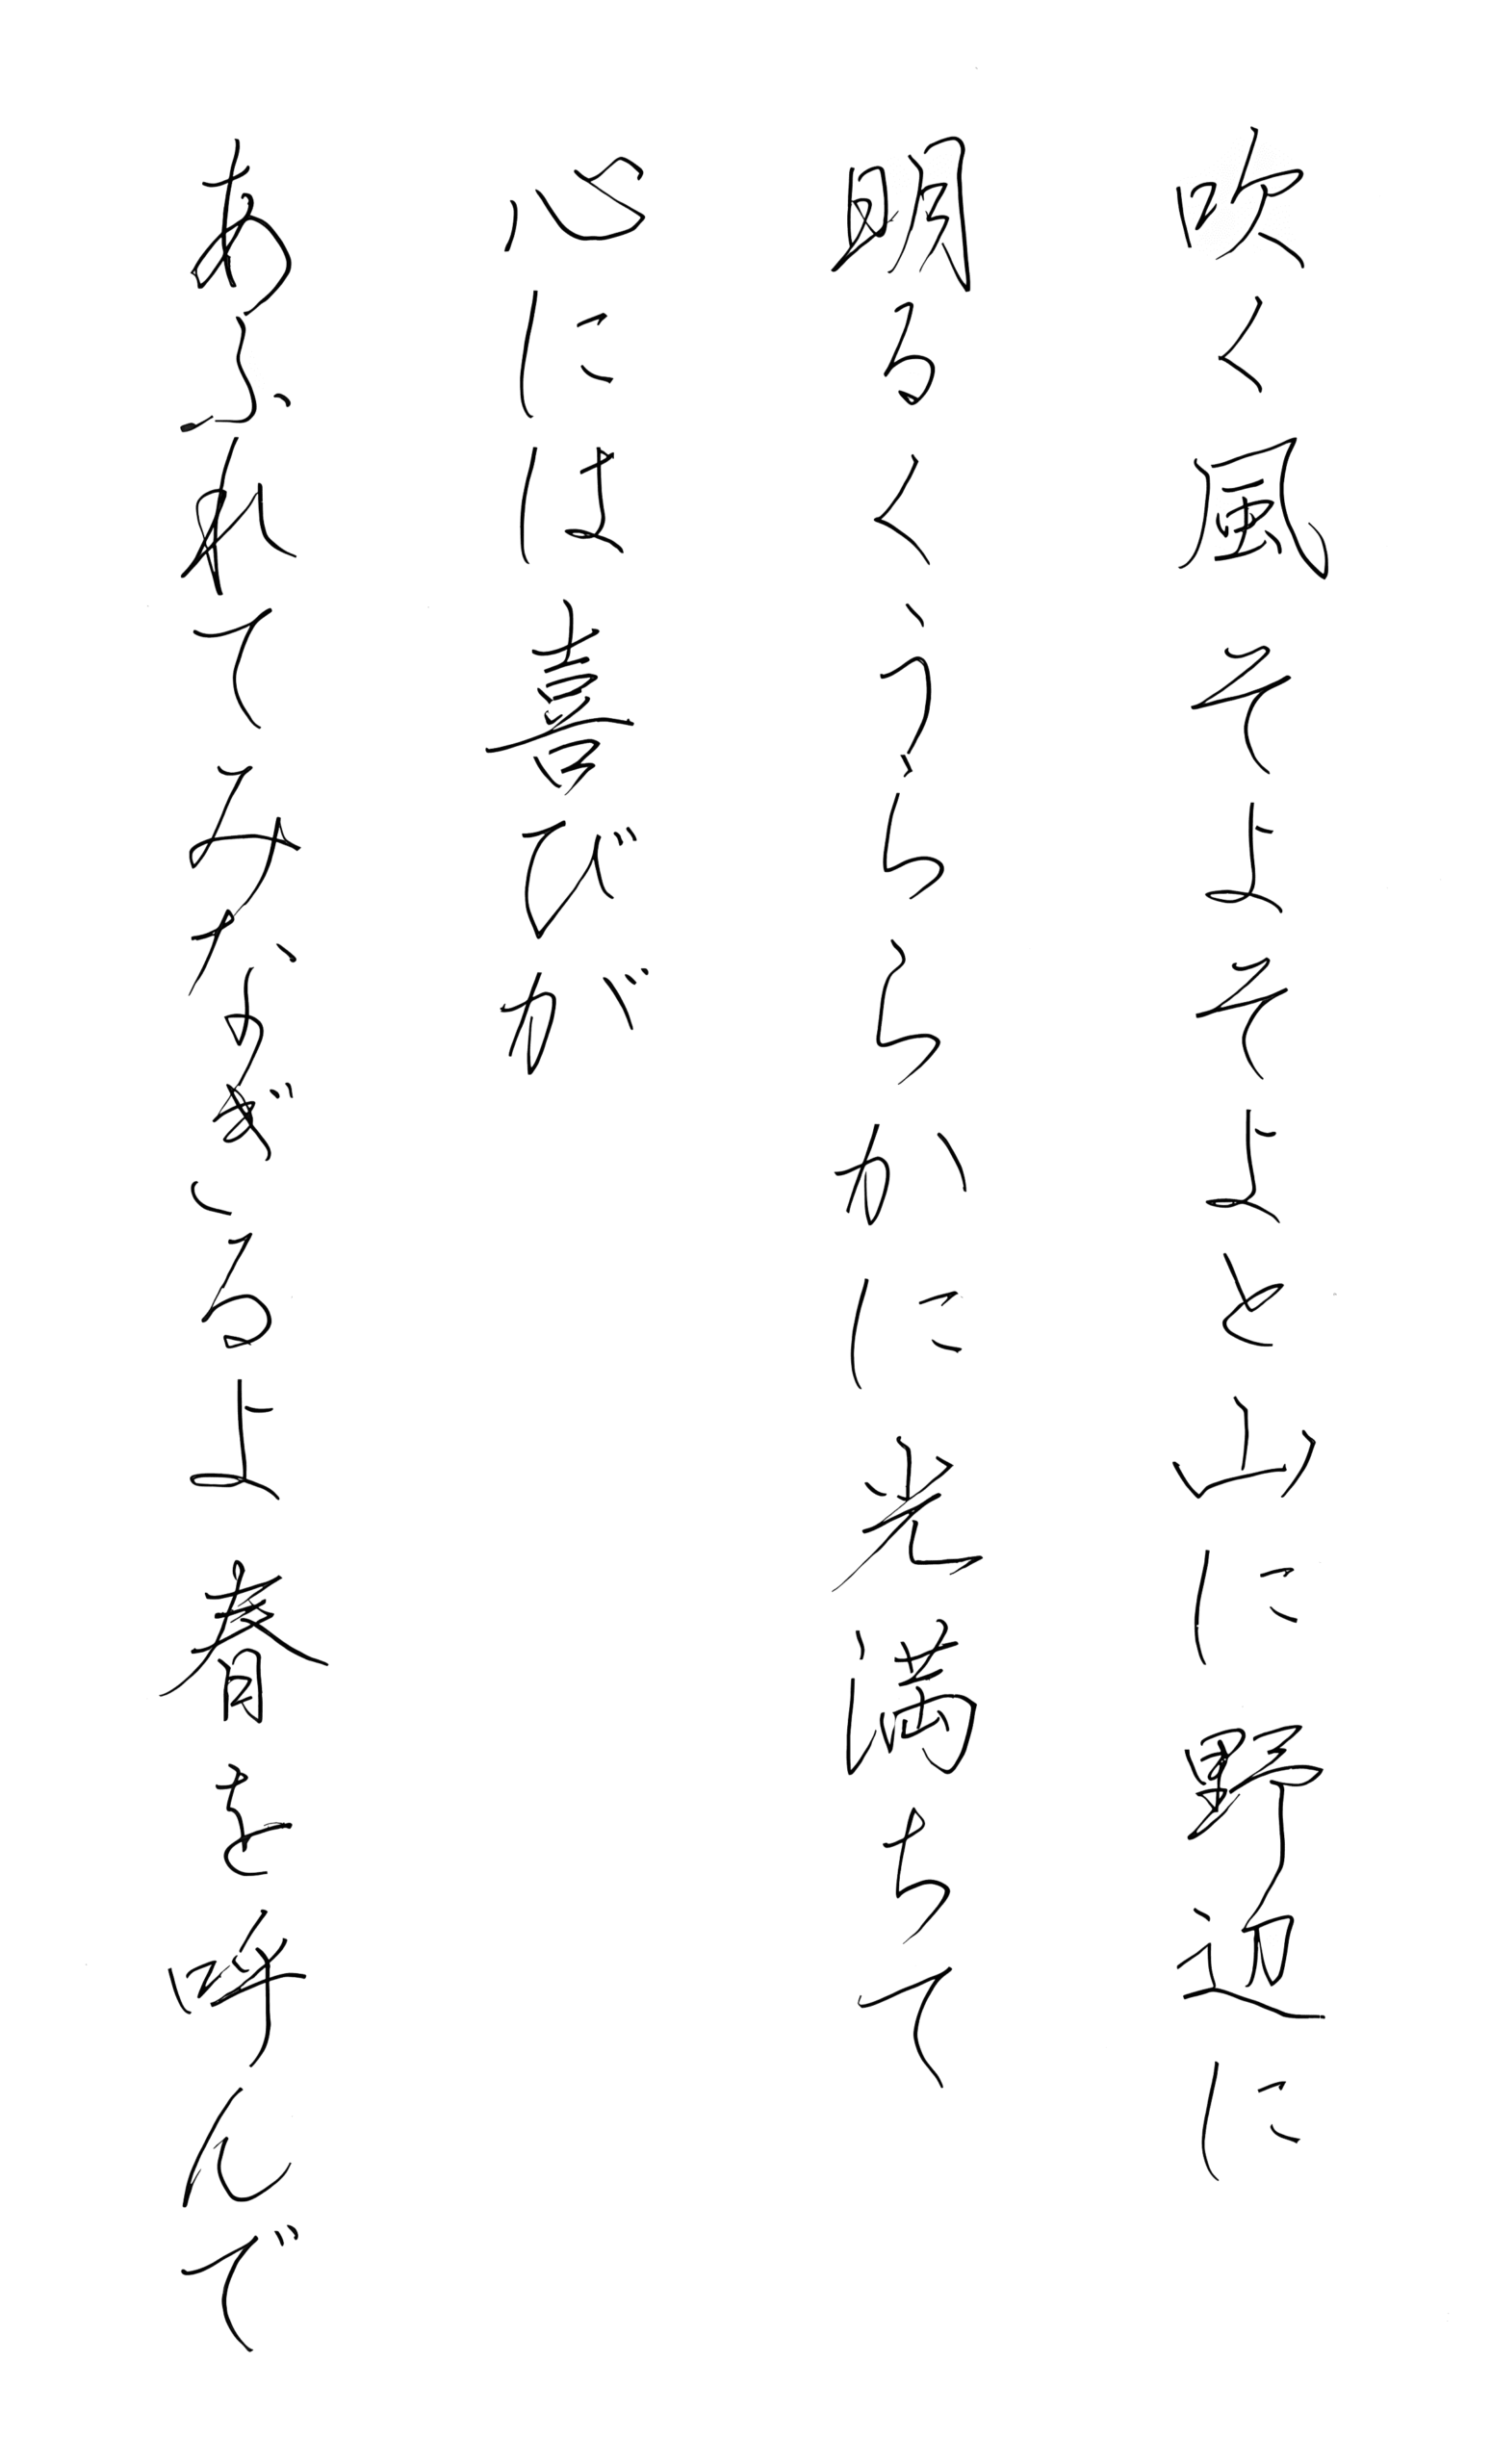 吹く風そよそよと山に野辺に
明るくうららかに光満ちて
心には喜びが
あふれてみなぎるよ春を呼んで